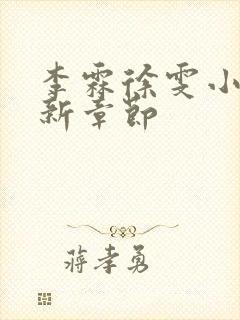 李霖徐雯小
新章节
蒋孝勇